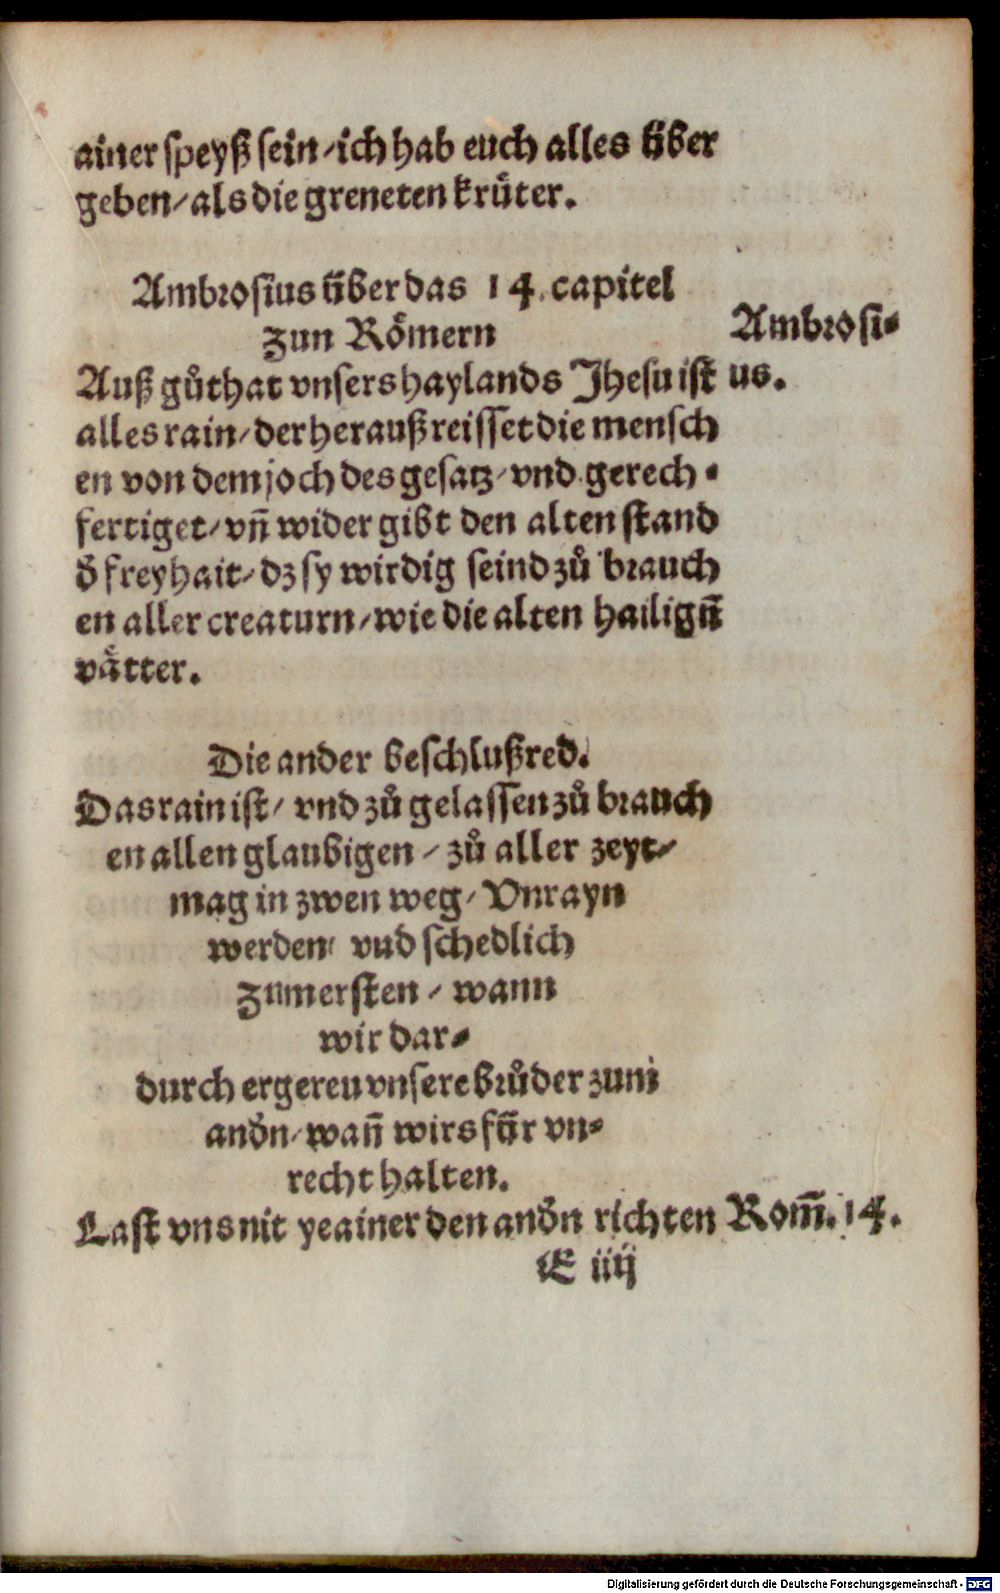 ainer speyß sein/ich hab euch alles über
geben/als die greneten krüter.
Ambrosius über das 14. capitel
zun Römern
Ambrosi⸗
us.
Auß gůthat vnsers haylands Jhesu ist
alles rain/der herauß reisset die mensch
en von dem joch des gesatz/vnd gerech⸗
fertiget/vñ wider gibt den alten stand
ð freyhait/dz sy wirdig seind zů brauch
en aller creaturn/wie die alten hailigñ
våtter.
Die ander beschlußred.
Das rain ist/ vnd zů gelassen zů brauch
en allen glaubigen/zů aller zeyt/
mag in zwen weg/Vnrayn
werden/ vnd schedlich
zumersten/wann
wir dar⸗
durch ergereu vnsere brůder zum
anðn/wañ wirs für vn⸗
recht halten.
Last vns nit yeainer den anðn richten Rom̃.14.
E iiij
Digitalisierung gefördert durch die Deutsche Forschungsgemeinschaft - DFG